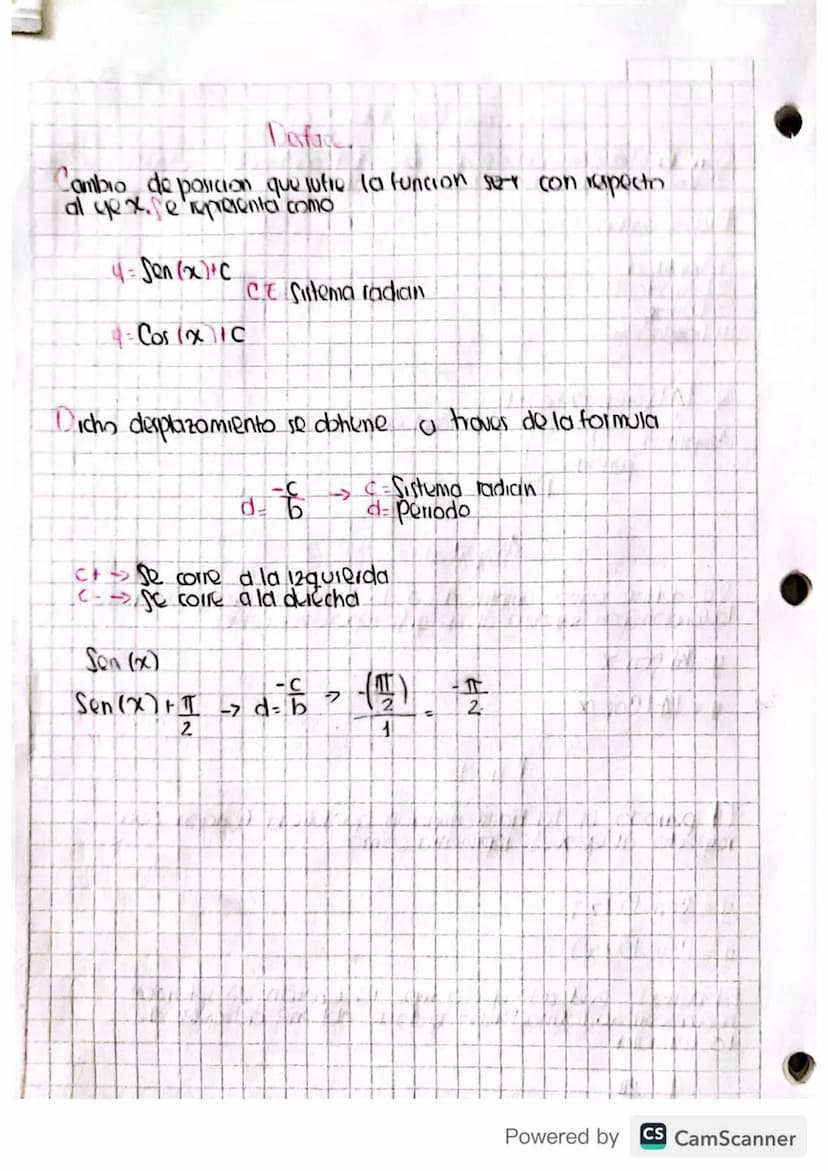 Desfase.
Cambio de posicion que sufre la funcion ser con respecto
al eje x. Se representa como
y = Sen (x)+C
C E Sistema radian
y = Cos (x)+C
Dicho desplazamiento se obtiene a traves de la formula
d= -c/b → C = Sistema radian
d= Periodo
C+ → Se corre a la izquierda
C- → Se corre a la derecha
Sen (x)
Sen (x) + π/2 → d= -c/b → -(π/2)/1 = -π/2
Powered by CS CamScanner